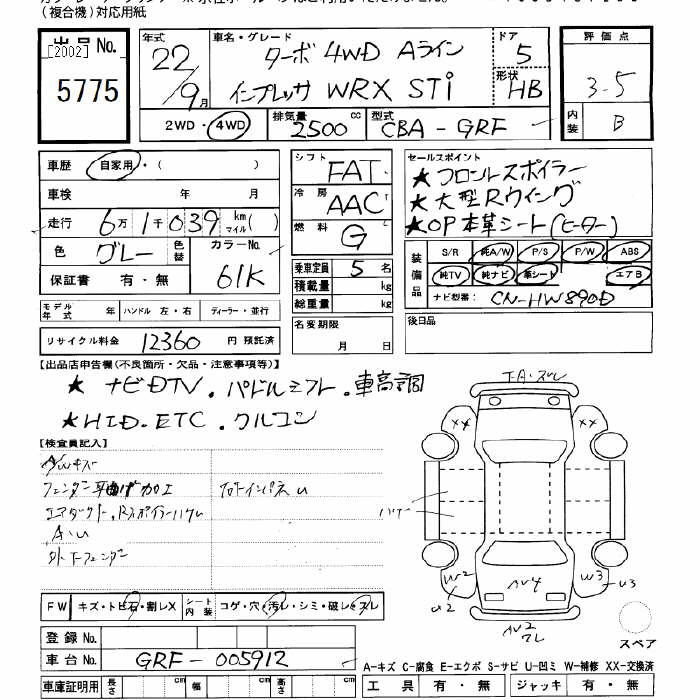 (複合機)対応用紙
出品 No.
[2002]
5775
年式
22/9月
車名・グレード
ターボ 4WD Aライン
インプレッサ WRX STi
ドア
5
形状
HB
評価点
3.5
内装
B
2WD・4WD
排気量
2500 cc
型式
CBA-GRF
車歴
自家用・( )
車検 年 月
走行
6万1千039 km マイル( )
色
グレー
色替
カラーNo.
61K
保証書 有・無
シフト
FAT
冷房
AAC
燃料
G
乗車定員 5 名
積載量 kg
総重量 kg
セールスポイント
★フロントスポイラー
★大型Rウイング
★OP本革シート(ヒーター)
装備品
S/R 純A/W P/S P/W ABS
純TV 純ナビ 革シート エアB
ナビ型番: CN-HW890D
モデル年式 年 ハンドル 左・右 ディーラー・並行
リサイクル料金 12360 円 預託済
名変期限
月 日
後日品
【出品店申告欄(不良箇所・欠品・注意事項等)】
★ ナビDTV.パドルシフト.車高調
★HID.ETC.クルコン
【検査員記入】
A/Wキズ
フェンダー耳曲げ加工
フロートインパネU
エアダクト.Rスポイラーハゲ
A.U
F.A.ズレ
XX
XX
ハゲ
W2
U2
AU4
W3
U3
AU2
ワレ
スペア
FW キズ・トビ石・割レX
シート内装 コゲ・穴・汚レ・シミ・破レ・スレ
登録 No.
車台 No. GRF-005912
車庫証明用 長さ cm 幅 cm 高さ cm
A-キズ C-腐食 E-エクボ S-サビ U-凹ミ W-補修 XX-交換済
工具 有・無 ジャッキ 有・無